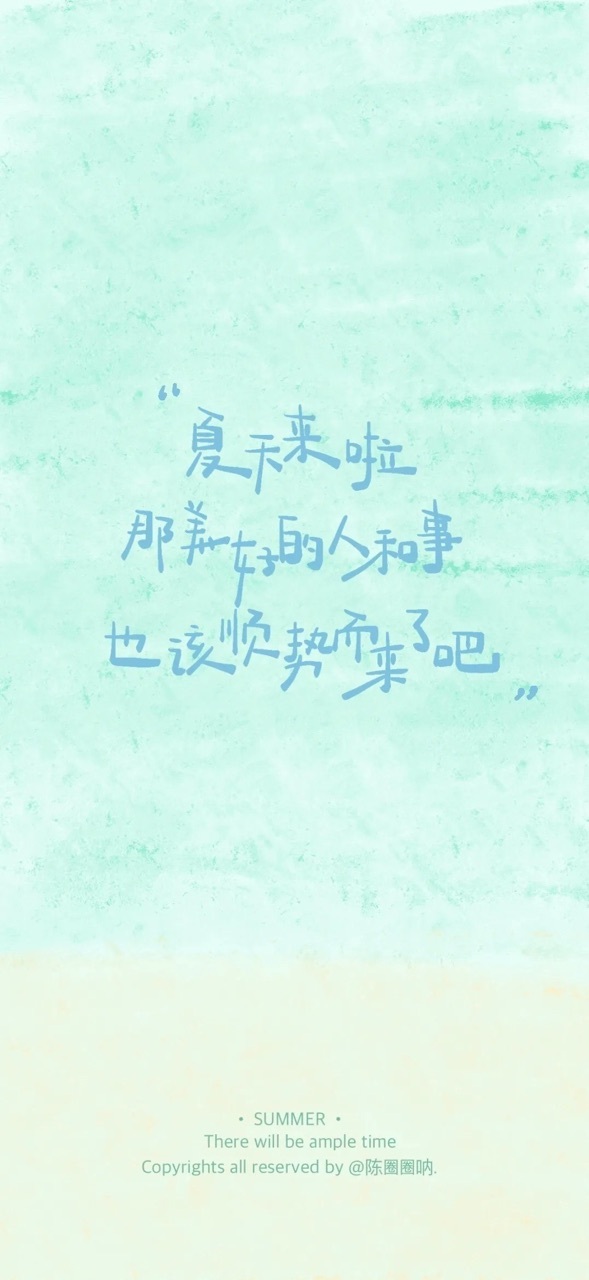 “夏天来啦
那美好的人和事
也该顺势而来了吧”
• SUMMER •
There will be ample time
Copyrights all reserved by @陈圈圈呐.